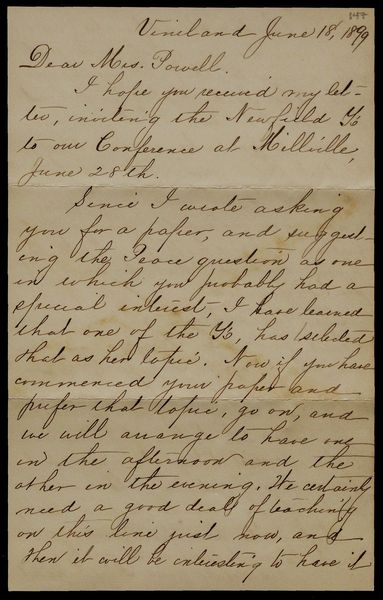 147
Vineland June 18, 1899
Dear Mrs. Powell.
I hope you received my let-
ter, inviting the Newfield Ys
to our Conference at Millville,
June 28th.
Since I wrote asking
you for a paper, and suggest-
ing the Peace question as one
in which you probably had a
special interest, I have learned
that one of the Ys. has selected
that as her topic. Now if you have
commenced your paper and
prefer that topic, go on, and
we will arrange to have one
in the afternoon and the
other in the evening. We certainly
need a good deal of teaching
on this line just now, and
then it will be interesting to have it